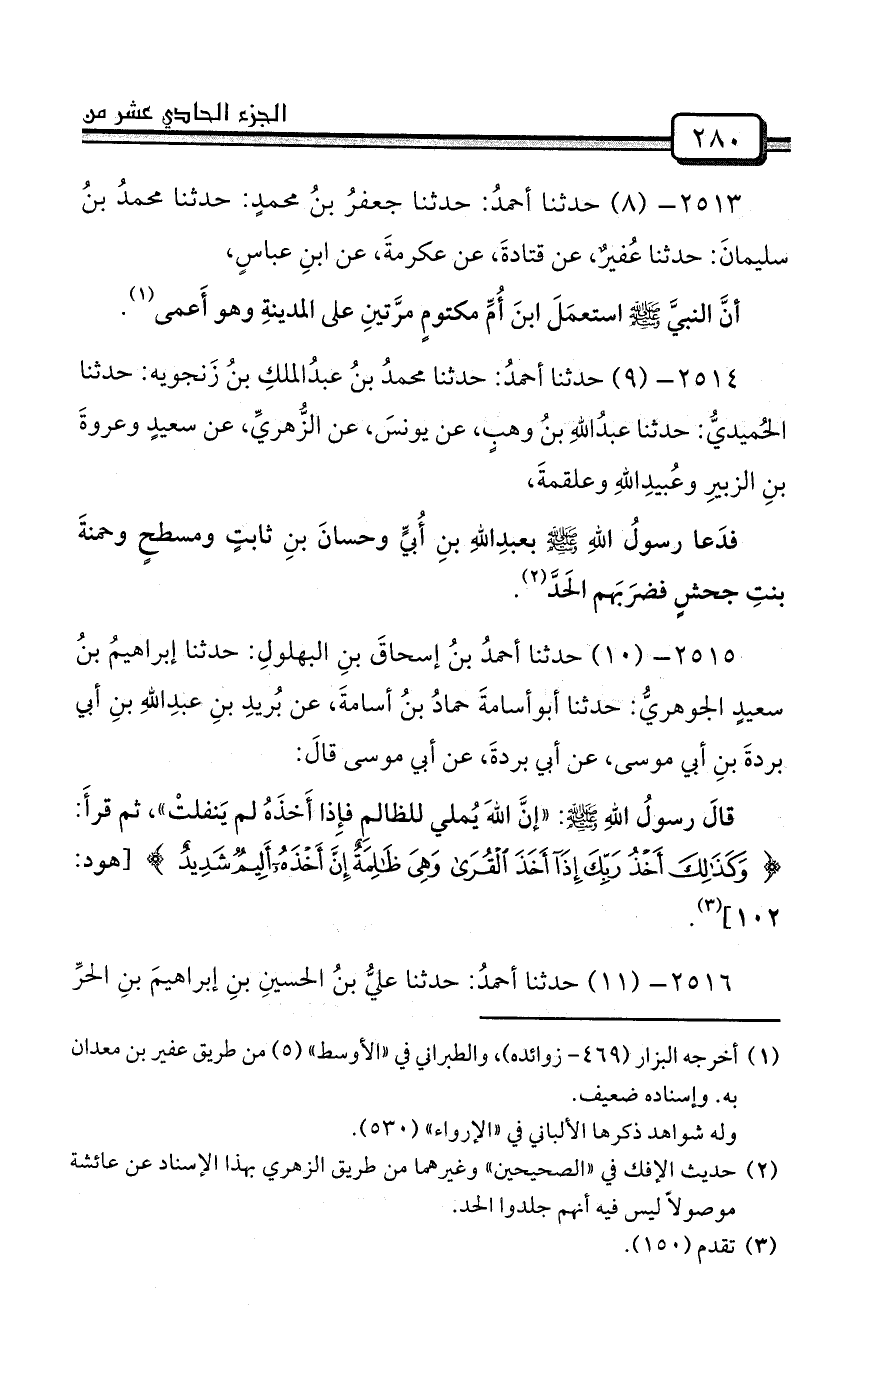 الجزء الحادي عشر من
٢٨٠
٢٥١٣ - (٨) حدثنا أحمدُ: حدثنا جعفرُ بنُ محمدٍ: حدثنا محمدُ بنُ
سليمانَ: حدثنا عُفيرٌ، عن قتادةَ، عن عكرمةَ، عن ابنِ عباسٍ،
أنَّ النبيَّ ﷺ استعمَلَ ابنَ أُمِّ مكتومٍ مرَّتينِ على المدينةِ وهو أَعمى(١).
٢٥١٤ - (٩) حدثنا أحمدُ: حدثنا محمدُ بنُ عبدُالملكِ بنُ زَنجويه: حدثنا
الحُميديُّ: حدثنا عبدُاللهِ بنُ وهبٍ، عن يونسَ، عن الزُّهريِّ، عن سعيدٍ وعروةَ
بنِ الزبيرِ وعُبيدِاللهِ وعلقمةَ،
فدَعا رسولُ اللهِ ﷺ بعبدِاللهِ بنِ أُبيٍّ وحسانَ بنِ ثابتٍ ومسطحٍ وحمنةَ
بنتِ جحشٍ فضرَبَهم الحَدَّ(٢).
٢٥١٥ - (١٠) حدثنا أحمدُ بنُ إسحاقَ بنِ البهلولِ: حدثنا إبراهيمُ بنُ
سعيدٍ الجوهريُّ: حدثنا أبوأسامةَ حمادُ بنُ أسامةَ، عن بُريدِ بنِ عبدِاللهِ بنِ أبي
بردةَ بنِ أبي موسى، عن أبي بردةَ، عن أبي موسى قالَ:
قالَ رسولُ اللهِ ﷺ: «إنَّ اللهَ يُملي للظالمِ فإِذا أَخذَهُ لم يَنفلتْ»، ثم قرأَ:
﴿ وَكَذَٰلِكَ أَخۡذُ رَبِّكَ إِذَآ أَخَذَ ٱلۡقُرَىٰ وَهِيَ ظَٰلِمَةٌۚ إِنَّ أَخۡذَهُۥٓ أَلِيمٞ شَدِيدٌ ﴾ [هود:
١٠٢](٣).
٢٥١٦ - (١١) حدثنا أحمدُ: حدثنا عليُّ بنُ الحسينِ بنِ إبراهيمَ بنِ الحرِّ
(١) أخرجه البزار (٤٦٩- زوائده)، والطبراني في «الأوسط» (٥) من طريق عفير بن معدان
به. وإسناده ضعيف.
وله شواهد ذكرها الألباني في «الإرواء» (٥٣٠).
(٢) حديث الإفك في «الصحيحين» وغيرهما من طريق الزهري بهذا الإسناد عن عائشة
موصولاً ليس فيه أنهم جلدوا الحد.
(٣) تقدم (١٥٠).